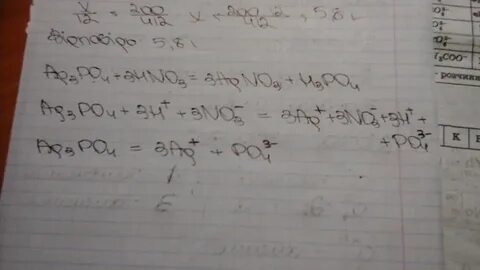 x/12 = 200/412 x = 200·12/412 = 5,8 г
Відповідь 5,8 г
Ag₃PO₄ + 3HNO₃ = 3AgNO₃ + H₃PO₄
Ag₃PO₄ + 3H⁺ + 3NO₃⁻ = 3Ag⁺ + 3NO₃⁻ + 3H⁺ +
+ PO₄³⁻
Ag₃PO₄ = 3Ag⁺ + PO₄³⁻
COO⁻
К